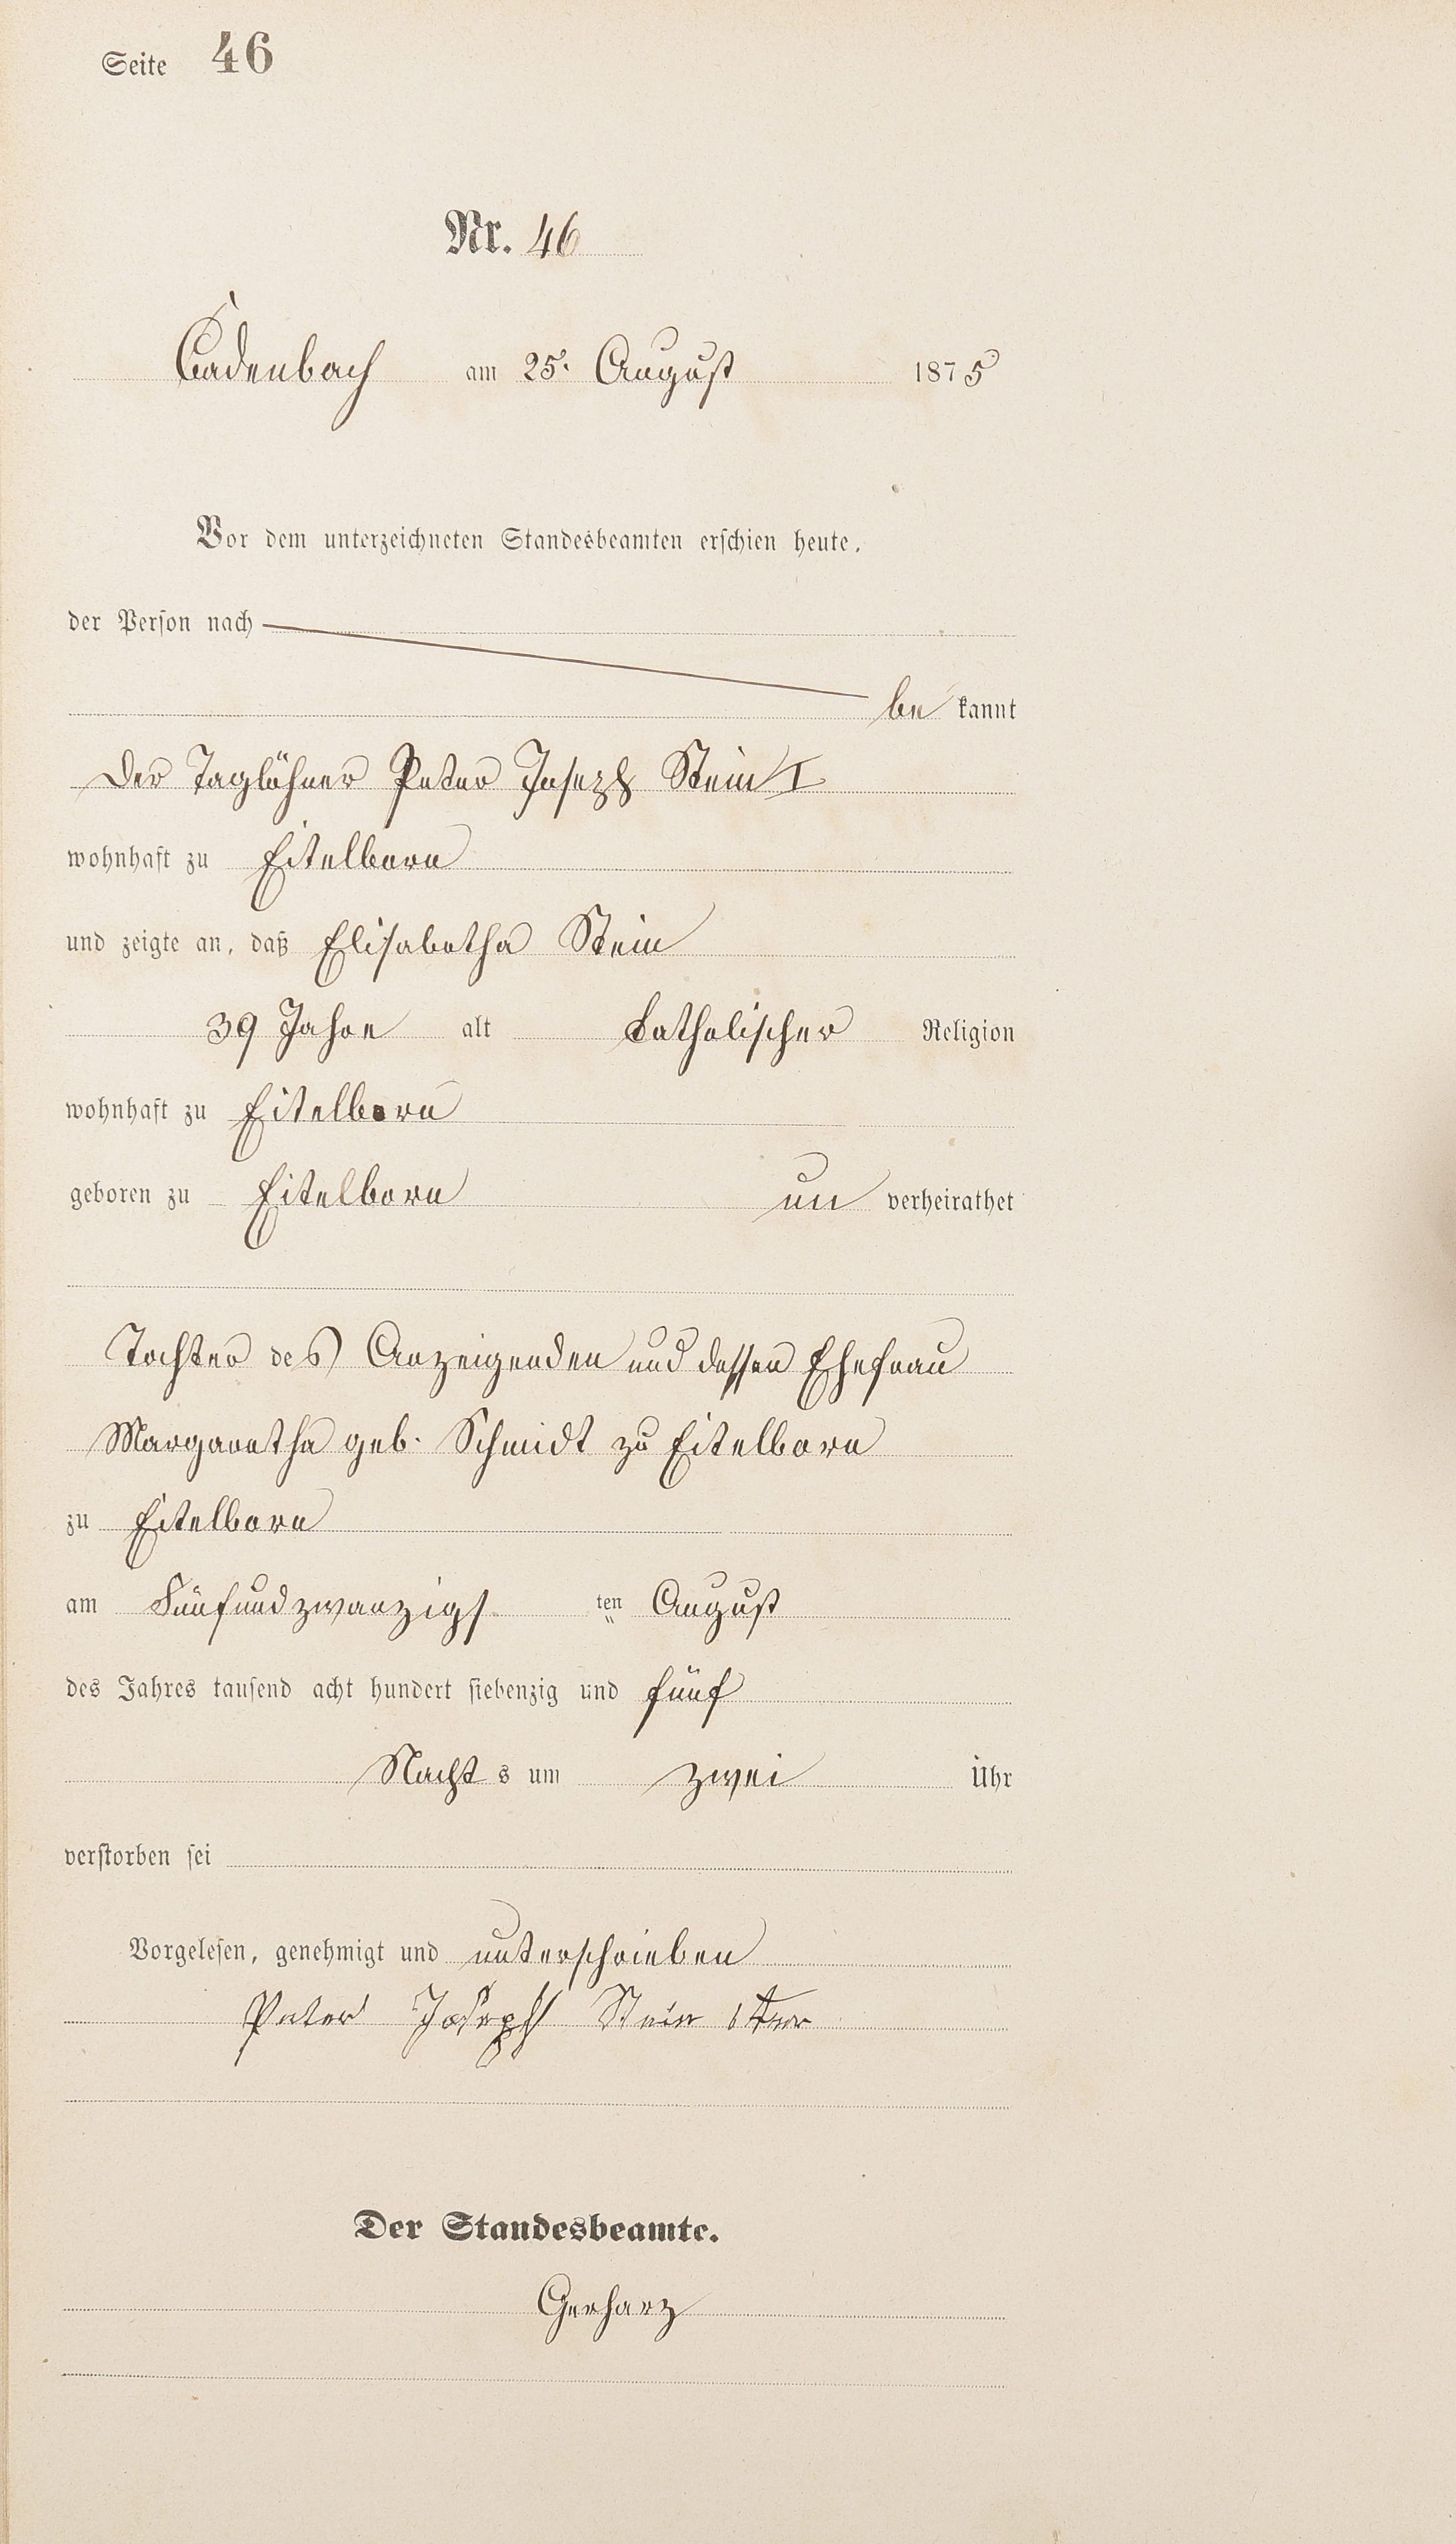 Seite 46
Nr. 46
Cadenbach am 25. August 1875
Vor dem unterzeichneten Standesbeamten erschien heute,
der Person nach
be kannt
der Taglöhner Peter Joseph Stein I
wohnhaft zu Eitelborn
und zeigte an, daß Elisabetha Stein
39 Jahre alt katholischer Religion
wohnhaft zu Eitelborn
geboren zu Eitelborn un verheirathet
Tochter des Anzeigenden und dessen Ehefrau
Margaretha geb. Schmidt zu Eitelborn
zu Eitelborn
am Fünfundzwanzigs ten August
des Jahres tausend acht hundert siebenzig und fünf
Nacht s um zwei Uhr
verstorben sei
Vorgelesen, genehmigt und unterschrieben
Peter Joseph Stein 1ter
Der Standesbeamte.
Gerharz